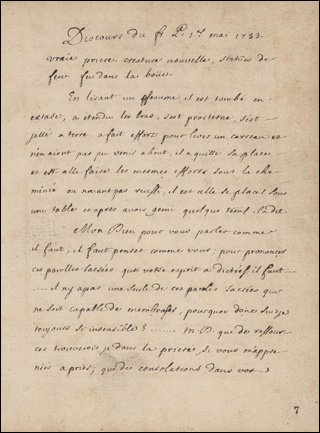 Discours du fr P. 1er mai 1733.
vraie priere creature nouvelle, statües de
feu dans la boüe.
En lisant un pseaume il est tombé en
extase, a étendu les bras, s'est prosterné, s'est
jetté a terre a fait effort pour lever un carreau et
n'en aiant pas pu venir about, il a quitté sa place
et est allé faire les mesmes efforts sous la che
minée ou n'aiant pas reussi, il est allé se placer sous
une table et apres avoir gemi quelque tems il a dit.
Mon Dieu pour vous parler comme
il faut, il faut penser comme vous; pour prononcer
ces parolles sacrées que votre esprit a dictées il faut
.... il n'y a pas une seule de ces paroles sacrées qui
ne soit capable de m'embraser, pourquoy donc suis je
toujours si insensible? ....... M. D. que de ressour
ces trouverois je dans la priere, si vous m'appre
niés a prier; que de consolations dans vos
7